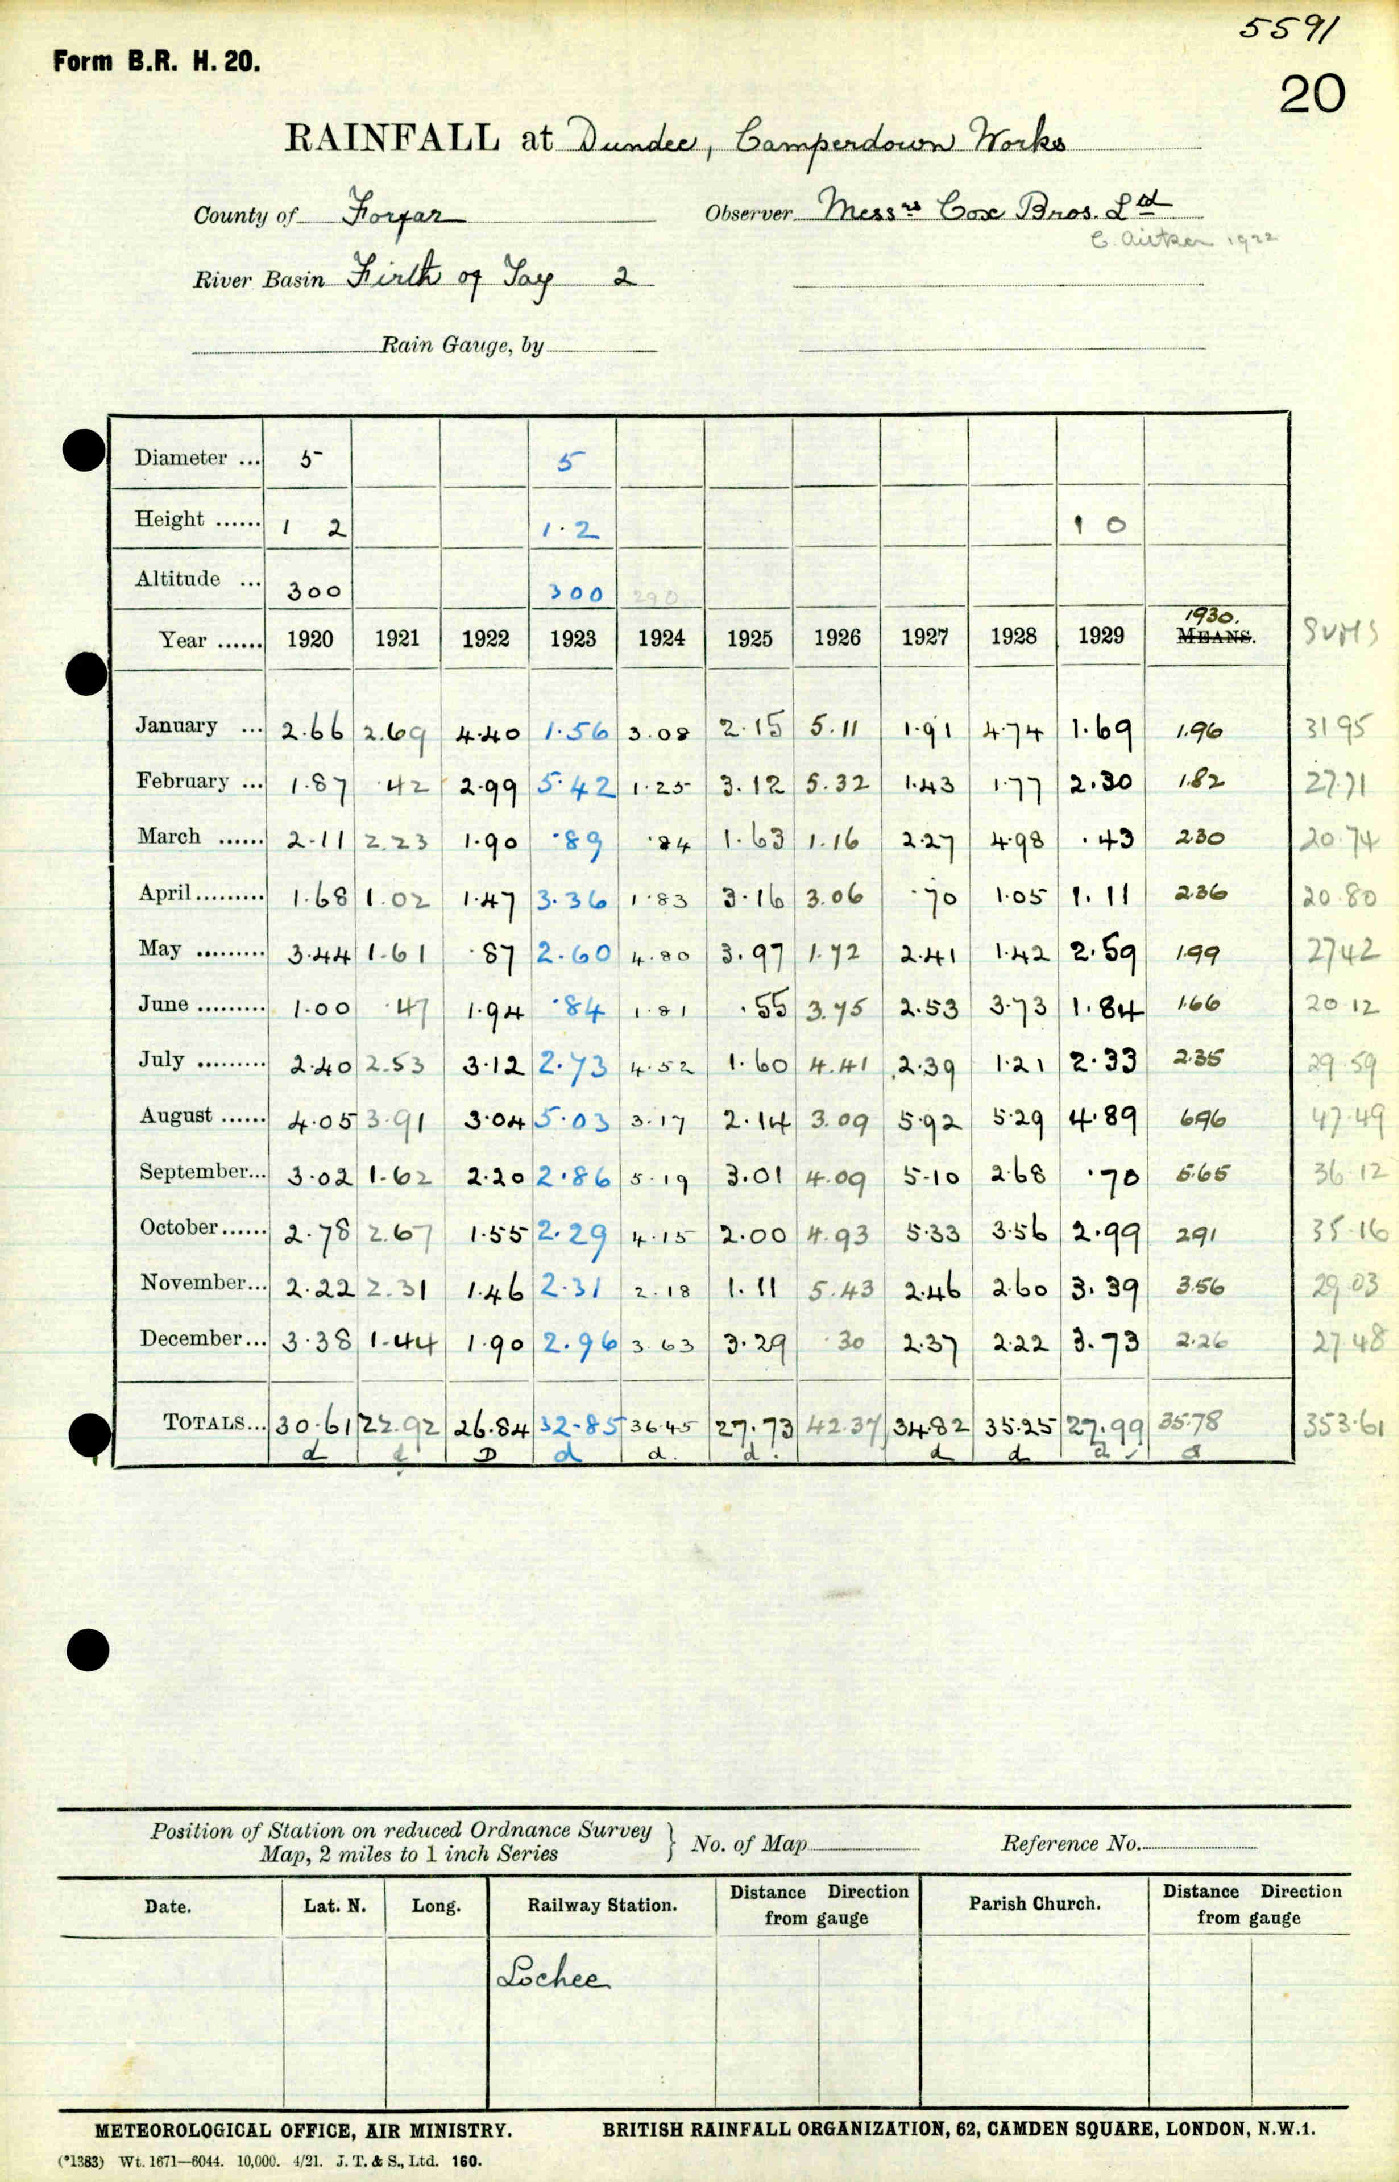 5591
Form B.R. H. 20.
20
RAINFALL at Dundee, Camperdown Works
County of Forfar Observer Messrs Cox Bros. Ltd
C. Aitken 1922
River Basin Firth of Tay 2
Rain Gauge, by
Diameter ... 5 5
Height ...... 1 2 1·2 1 0
Altitude ... 300 300 290
1930.
Year ...... 1920 1921 1922 1923 1924 1925 1926 1927 1928 1929 MEANS. SUMS
January ... 2.66 2.69 4.40 1.56 3.08 2.15 5.11 1.91 4.74 1.69 1.96 31 95
February ... 1.87 .42 2.99 5.42 1.25 3.12 5.32 1.43 1.77 2.30 1.82 27.71
March ...... 2.11 2.23 1.90 .89 .84 1.63 1.16 2.27 4.98 .43 2.30 20.74
April ......... 1.68 1.02 1.47 3.36 1.83 3.16 3.06 .70 1.05 1.11 2.36 20.80
May ......... 3.44 1.61 .87 2.60 4.80 3.97 1.72 2.41 1.42 2.59 1.99 27 42
June ......... 1.00 .47 1.94 .84 1.81 .55 3.75 2.53 3.73 1.84 1.66 20 12
July ......... 2.40 2.53 3.12 2.73 4.52 1.60 4.41 2.39 1.21 2.33 2.35 29.59
August ...... 4.05 3.91 3.04 5.03 3.17 2.14 3.09 5.92 5.29 4.89 6.96 47.49
September... 3.02 1.62 2.20 2.86 5.19 3.01 4.09 5.10 2.68 .70 5.65 36 12
October...... 2.78 2.67 1.55 2.29 4.15 2.00 4.93 5.33 3.56 2.99 2.91 35.16
November... 2.22 2.31 1.46 2.31 2.18 1.11 5.43 2.46 2.60 3.39 3.56 29.03
December... 3.38 1.44 1.90 2.96 3.63 3.29 .30 2.37 2.22 3.73 2.26 27.48
TOTALS... 30.61 22.92 26.84 32.85 36.45 27.73 42.37 34.82 35.25 27.99 35.78 353.61
d d D d d. d. d d d ✓ d
Position of Station on reduced Ordnance Survey
Map, 2 miles to 1 inch Series } No. of Map Reference No.
Date. Lat. N. Long. Railway Station. Distance Direction from gauge Parish Church. Distance Direction from gauge
Lochee
METEOROLOGICAL OFFICE, AIR MINISTRY. BRITISH RAINFALL ORGANIZATION, 62, CAMDEN SQUARE, LONDON, N.W.1.
(*1383) Wt. 1671—6044. 10,000. 4/21. J. T. & S., Ltd. 160.